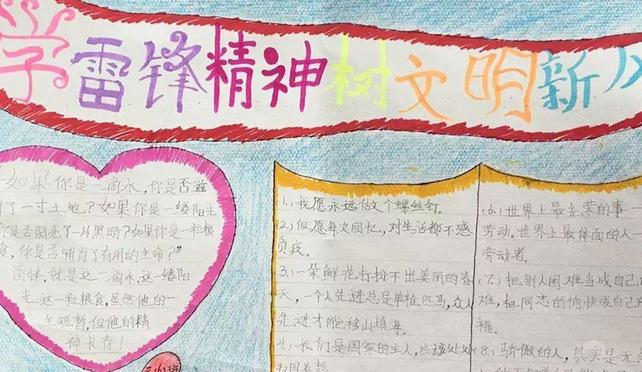 学雷锋精神树文明新公
如果你是一滴水,你是否滋
润了一寸土地?如果你是一缕阳光
你是否照亮了一片黑暗?如果你是一粒粮
食,你是否哺育了有用的生命?”
雷锋,就是这一滴水,这一缕阳
光,这一粒粮食,虽然他的一
生短暂,但他的精
神长存!
(1)我愿永远做个螺丝钉.
(2)但愿每次回忆,对生活都不感
负疚.
(3)一朵鲜花打扮不出美丽的春
天,一个人先进总是单枪匹马,众人
先进才能移山填海.
(4)我们是国家的主人,应该处处
为国着想.
(6)世界上最光荣的事—
劳动.世界上最体面的人—
劳动者.
(7)把别人困难当成自己
难,把同志的愉快成自己
福.
(8)骄傲的人,其实是无